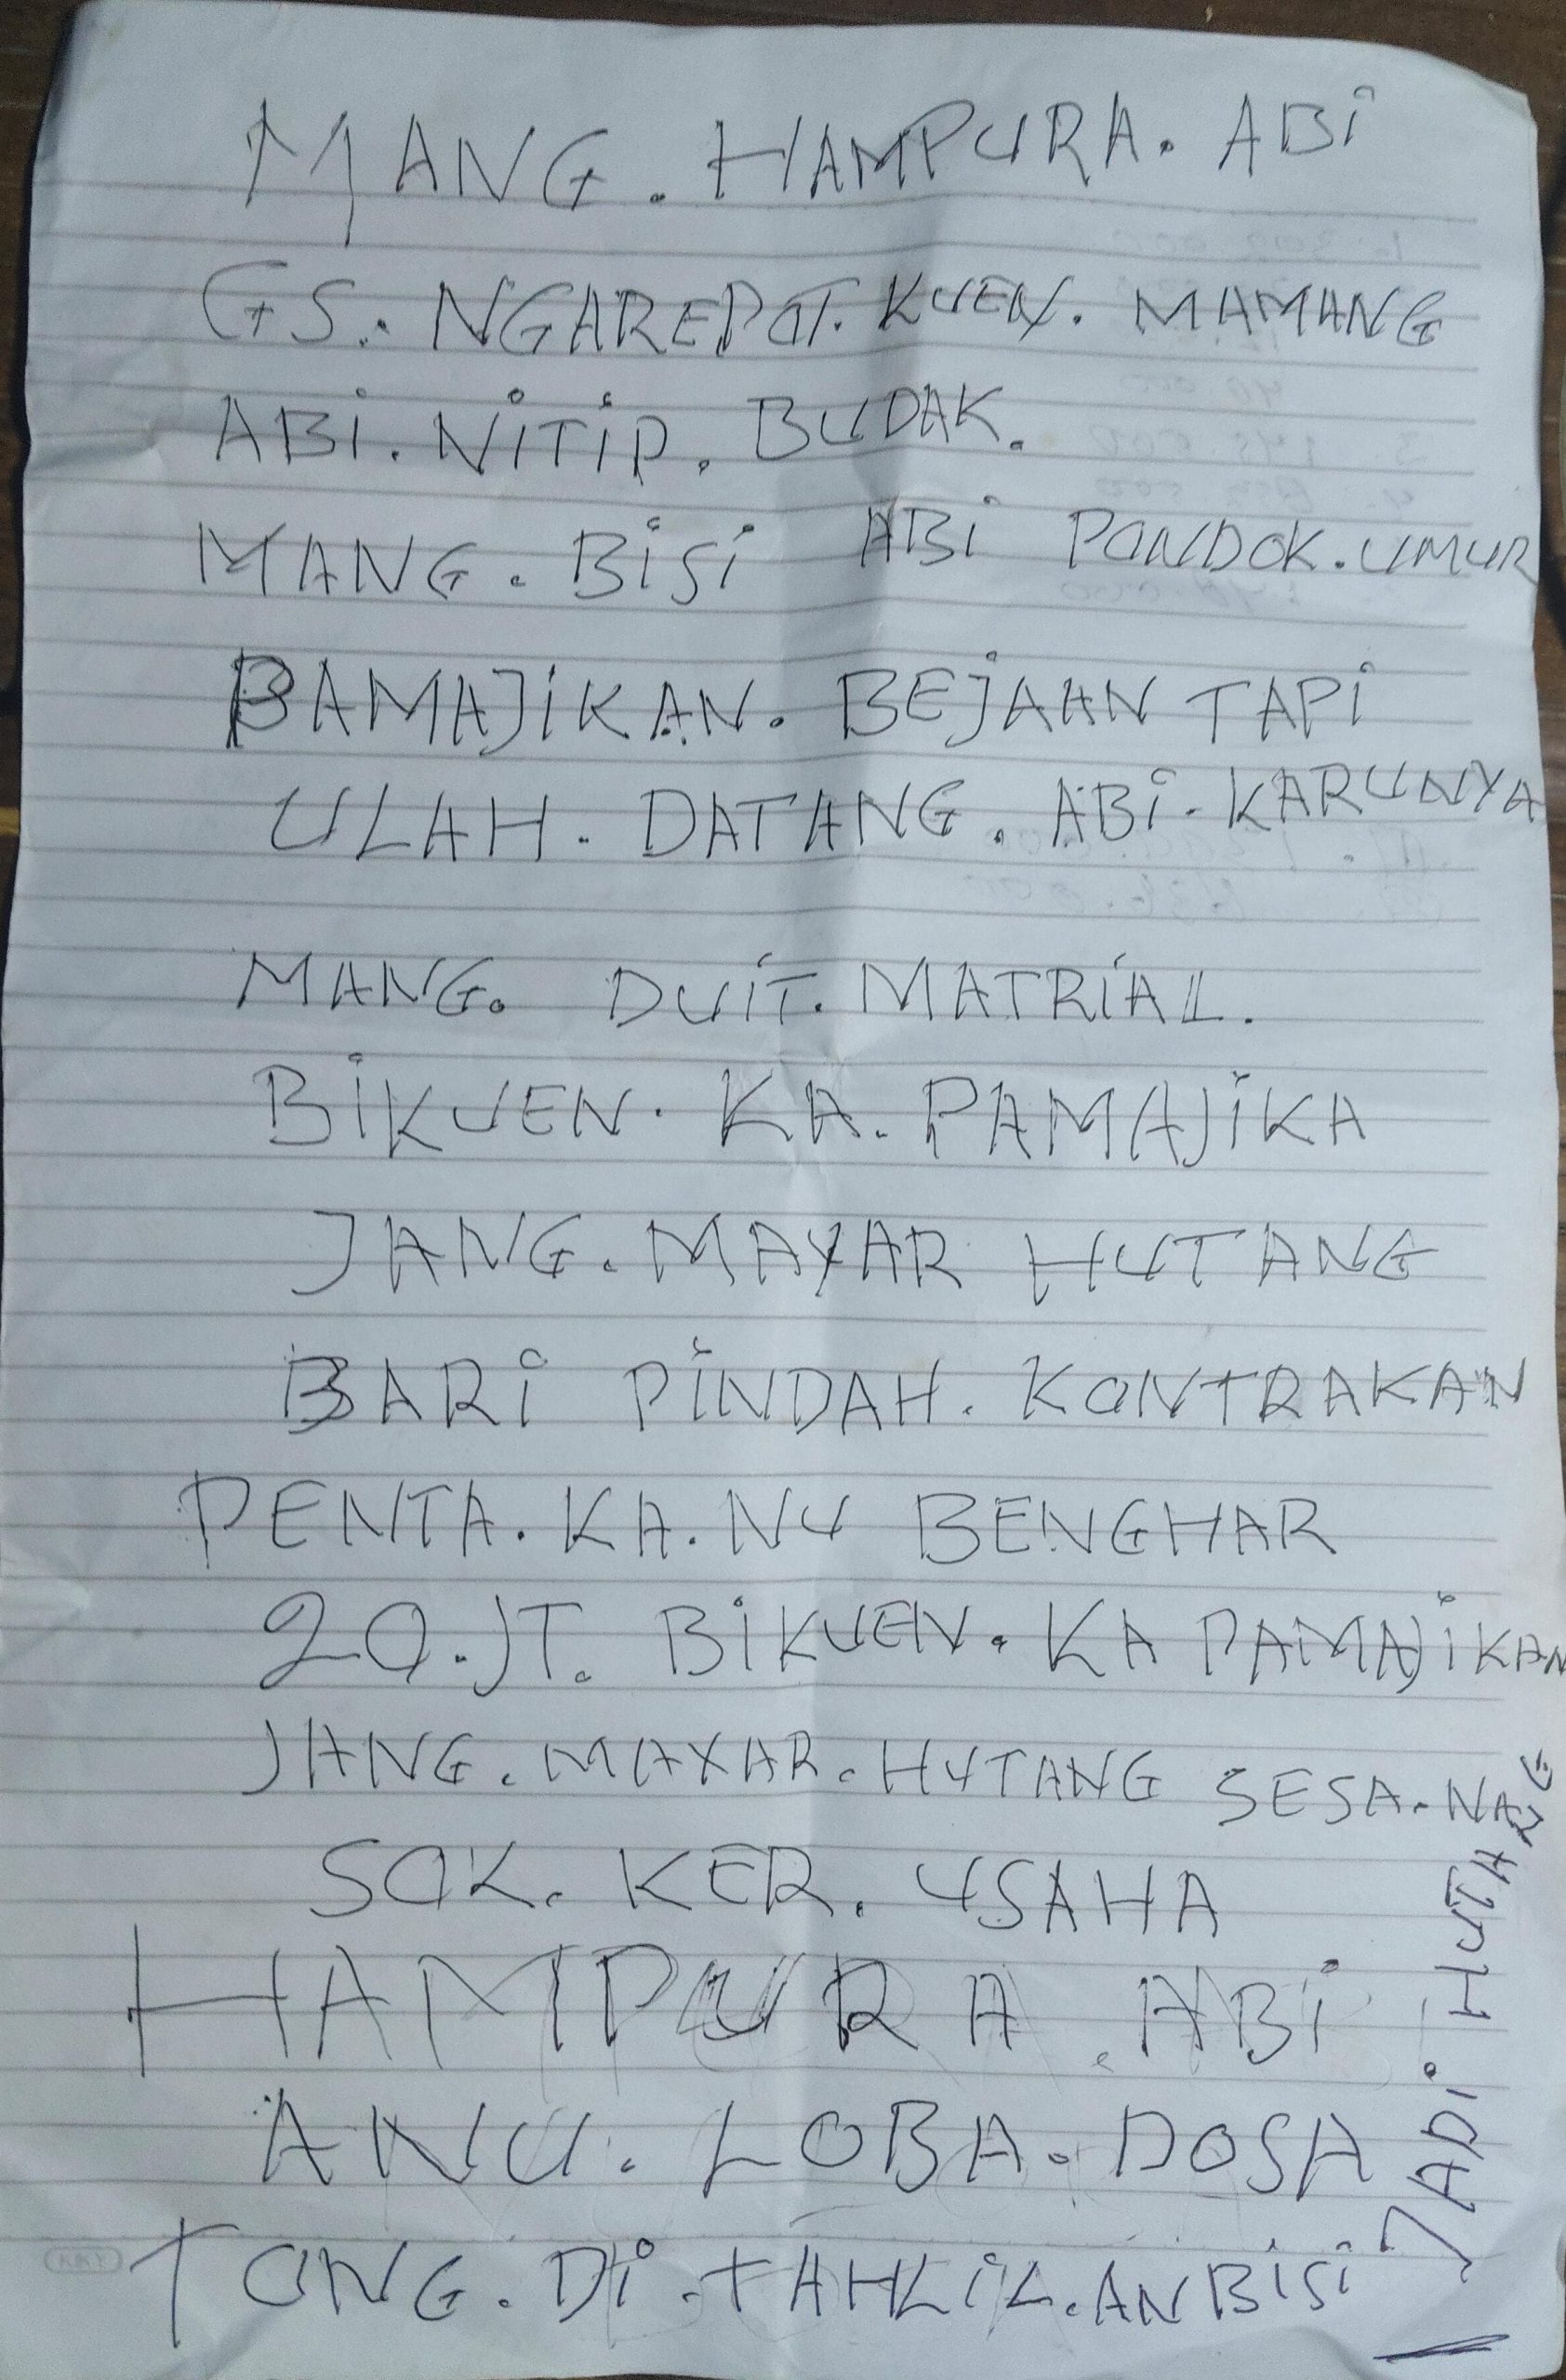 MANG. HAMPURA. ABi
GS. NGAREPOT. KUEN. MAMANG
ABi. NiTiP. BUDAK.
MANG. BiSi ABi PONDOK. UMUR
BAMAJiKAN. BEJAAN TAPi
ULAH. DATANG. ABi. KARUNYA
MANG. DUiT. MATRiAL.
BiKUEN. KA. PAMAJiKA
JANG. MAYAR HUTANG
BARi PiNDAH. KONTRAKAN
PENTA. KA. NU BENGHAR
20. JT. BiKUEN. KA PAMAJiKAN
JANG. MAYAR. HUTANG SESA. NA
SOK. KER. USAHA
HAMPURA. ABi
ANU. LOBA. DOSA
TONG. Di. TAHLiL. AN BiSi
JADi. HUTANG